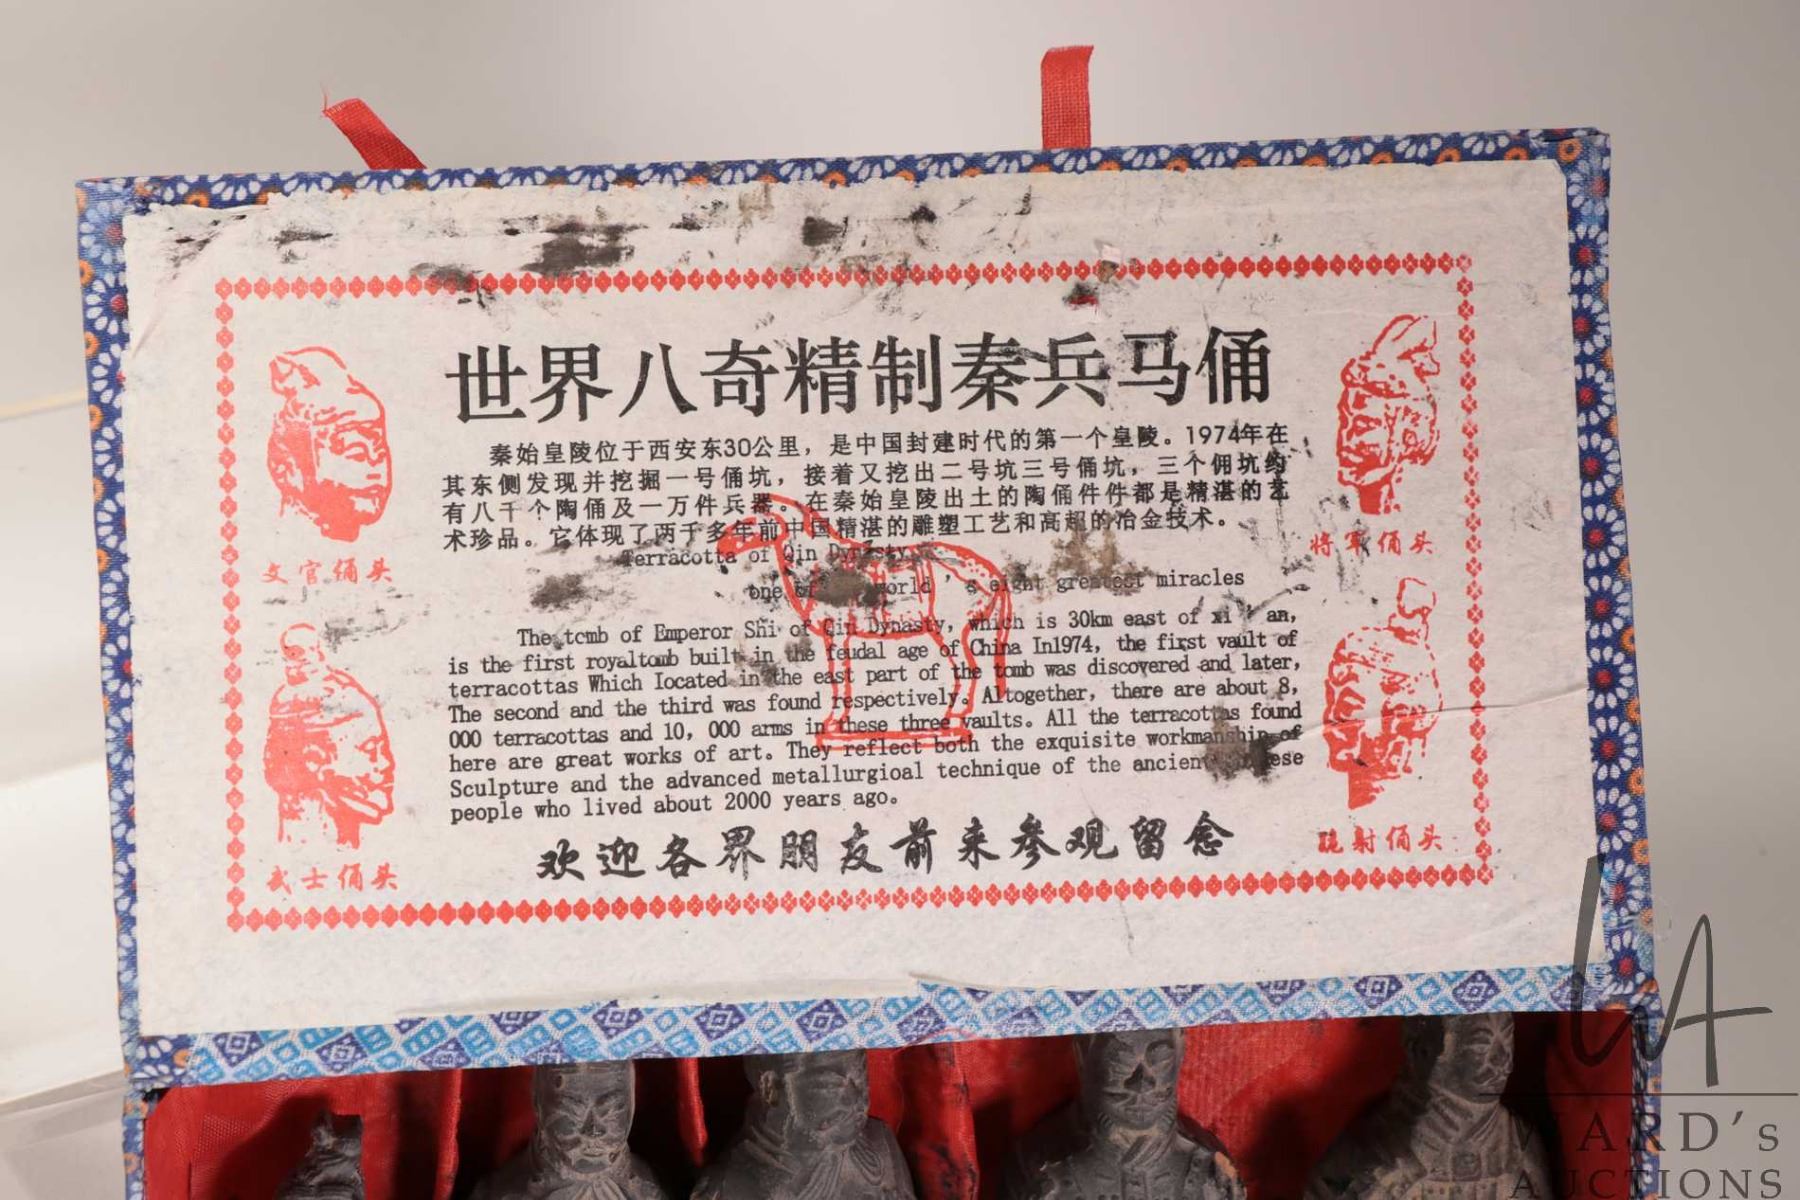 世界八奇精制秦兵马俑
秦始皇陵位于西安东30公里，是中国封建时代的第一个皇陵。1974年在
其东侧发现并挖掘一号俑坑，接着又挖出二号坑三号俑坑，三个佣坑约
有八千个陶俑及一万件兵器。在秦始皇陵出土的陶俑件件都是精湛的艺
术珍品。它体现了两千多年前中国精湛的雕塑工艺和高超的冶金技术。
Terracotta of Qin Dynasty
one of world 's eight greatest miracles
The tcmb of Emperor Shi of Qin Dynasty, which is 30km east of xi ' an,
is the first royaltomb built in the feudal age of China In1974, the first vault of
terracottas Which Iocated in the east part of the tomb was discovered and later,
The second and the third was found respectively. Altogether, there are about 8,
000 terracottas and 10, 000 arms in these three vaults. All the terracottas found
here are great works of art. They reflect both the exquisite workmanship of
Sculpture and the advanced metallurgioal technique of the ancient
people who lived about 2000 years ago.
欢迎各界朋友前来参观留念
文官俑头
武士俑头
将军俑头
跪射俑头
WARD's
AUCTIONS